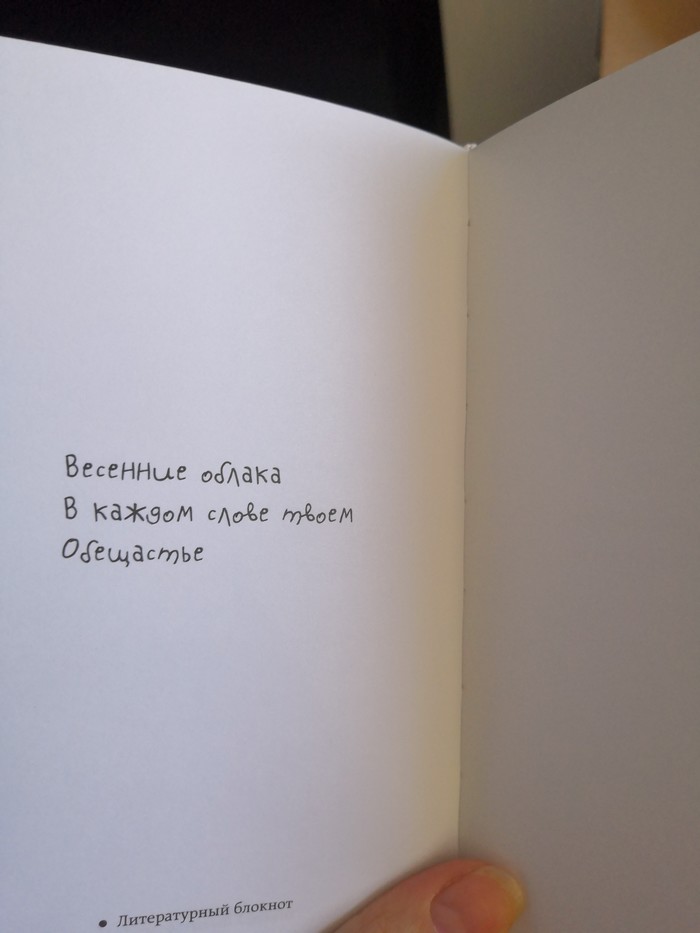 Весенние облака
В каждом слове твоем
Обещастье
• Литературный блокнот